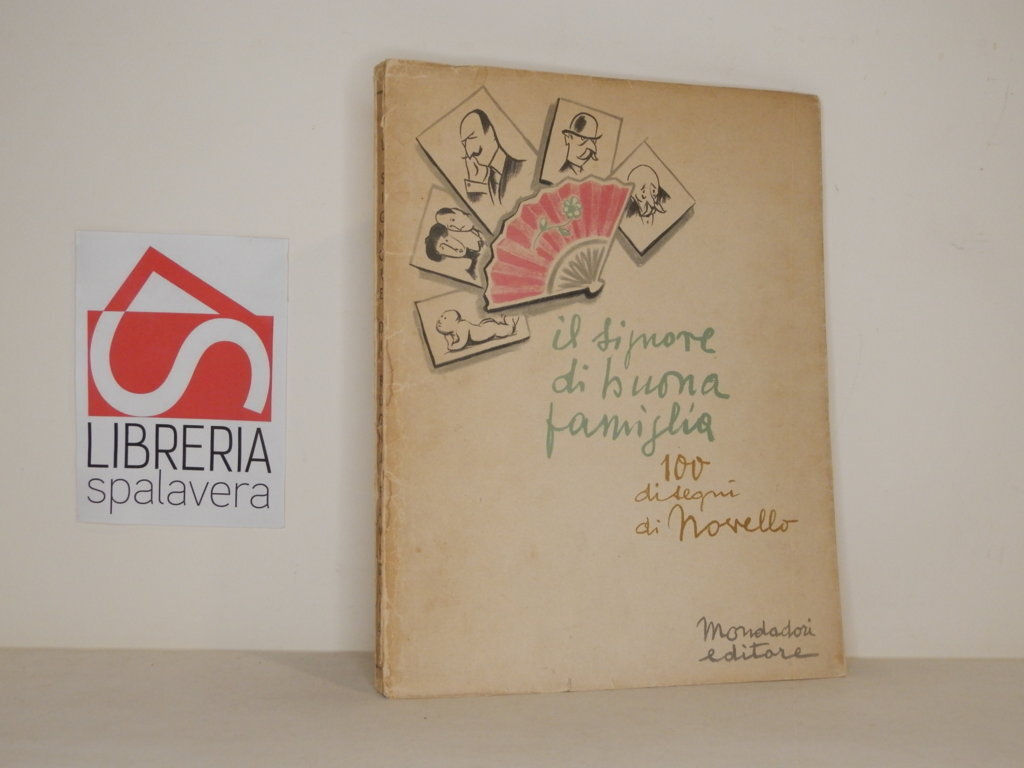 LIBRERIA
spalavera
il signore
di buona
famiglia
100
disegni
di Novello
Mondadori
editore